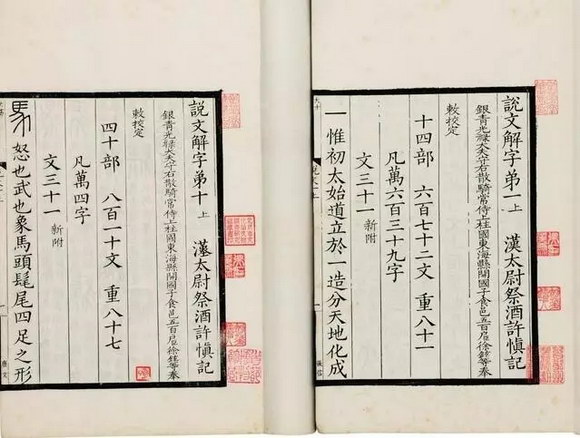 說文解字弟一 上 漢太尉祭酒許慎記
銀青光祿大夫守右散騎常侍上柱國東海縣開國子食邑五百戶徐鉉等奉
敕校定
十四部 六百七十二文 重八十一
凡萬六百三十九字
文三十一 新附
一 惟初太始道立於一造分天地化成
說文解字弟十 上 漢太尉祭酒許慎記
銀青光祿大夫守右散騎常侍上柱國東海縣開國子食邑五百戶徐鉉等奉
敕校定
四十部 八百一十文 重八十七
凡萬四字
文三十一 新附
馬 怒也武也象馬頭髦尾四足之形